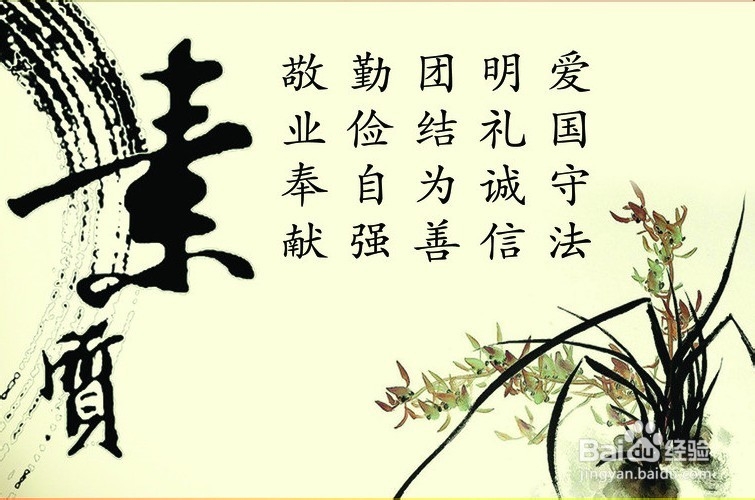 爱国守法
明礼诚信
团结为善
勤俭自强
敬业奉献
素
質
Baidu经验
jingyan.baidu.com